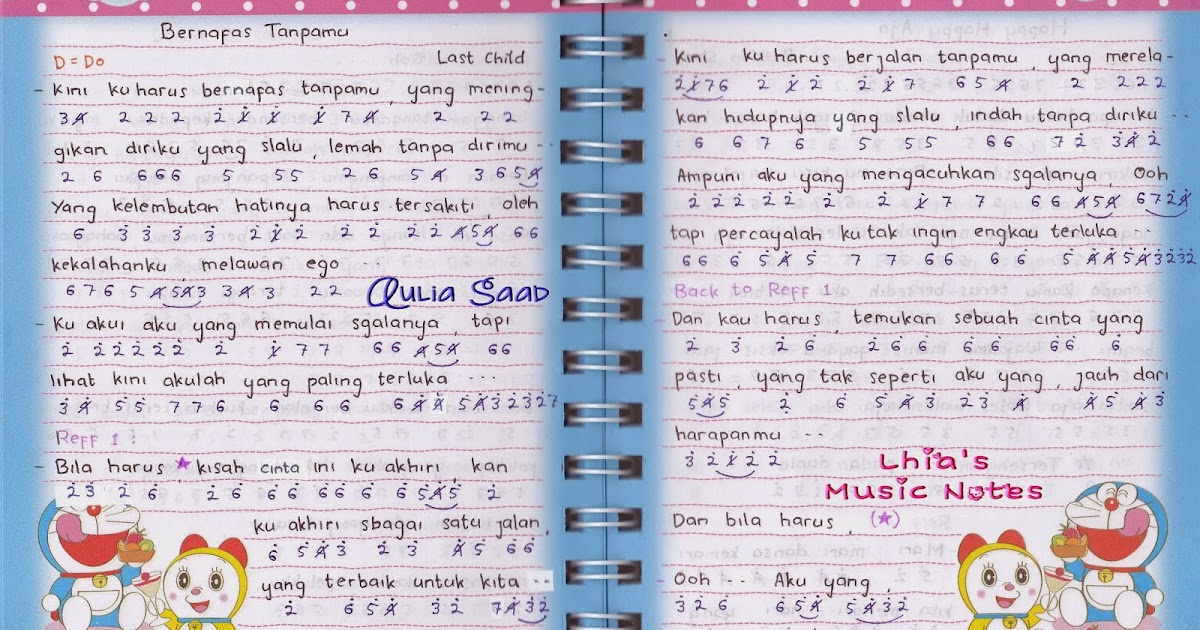 Bernafas Tanpamu
D = Do Last Child
- Kini ku harus bernafas tanpamu, yang mening-
3 4 2 2 2 2 1 1 1 7 4 2 2 2
gikan diriku yang slalu, lemah tanpa dirimu ..
2 6 6 6 6 5 5 5 2 6 5 4 3 6 5 4
Yang kelembutan hatinya harus tersakiti, oleh
6 3 3 3 3 2 1 2 2 2 2 2 4 5 4 6 6
kekalahanku melawan ego
6 7 6 5 4 5 4 3 3 4 3 2 2
Aulia Saad
- Ku akui aku yang memulai sgalanya, tapi
2 2 2 2 2 2 2 1 7 7 6 6 4 5 4 6 6
lihat kini akulah yang paling terluka ...
3 4 5 5 7 7 6 6 6 6 6 4 4 5 4 3 2 3 2 7
Reff 1 :
- Bila harus ★ kisah cinta ini ku akhiri kan
2 3 2 6 2 6 6 6 6 6 6 6 5 4 5 2
ku akhiri sbagai satu jalan,
6 5 4 3 2 3 4 5 6 6
yang terbaik untuk kita ..
2 6 5 4 3 2 7 4 3 2
- Kini ku harus berjalan tanpamu, yang merela-
2 1 7 6 2 1 2 2 1 7 6 5 4 2 2 2 2
kan hidupnya yang slalu, indah tanpa diriku ..
6 6 7 6 5 5 5 6 6 7 2 3 4 2
Ampuni aku yang mengacuhkan sgalanya, Ooh
2 2 2 2 2 2 2 1 7 7 6 6 4 5 4 6 7 2 4
tapi percayalah ku tak ingin engkau terluka ..
6 6 6 5 4 5 7 7 6 6 6 6 5 4 4 5 4 3 2 3 2
Back to Reff 1
- Dan kau harus, temukan sebuah cinta yang
2 3 2 6 2 6 6 6 6 6 6 6
pasti, yang tak seperti aku yang, jauh dari
5 4 5 2 6 5 4 3 2 3 4 4 5 4 3
harapanmu ..
3 2 1 2 2
Lhia's
Music Notes
Dan bila harus, (★)
- Ooh .. Aku yang,
3 2 6 6 5 4 5 4 3 2